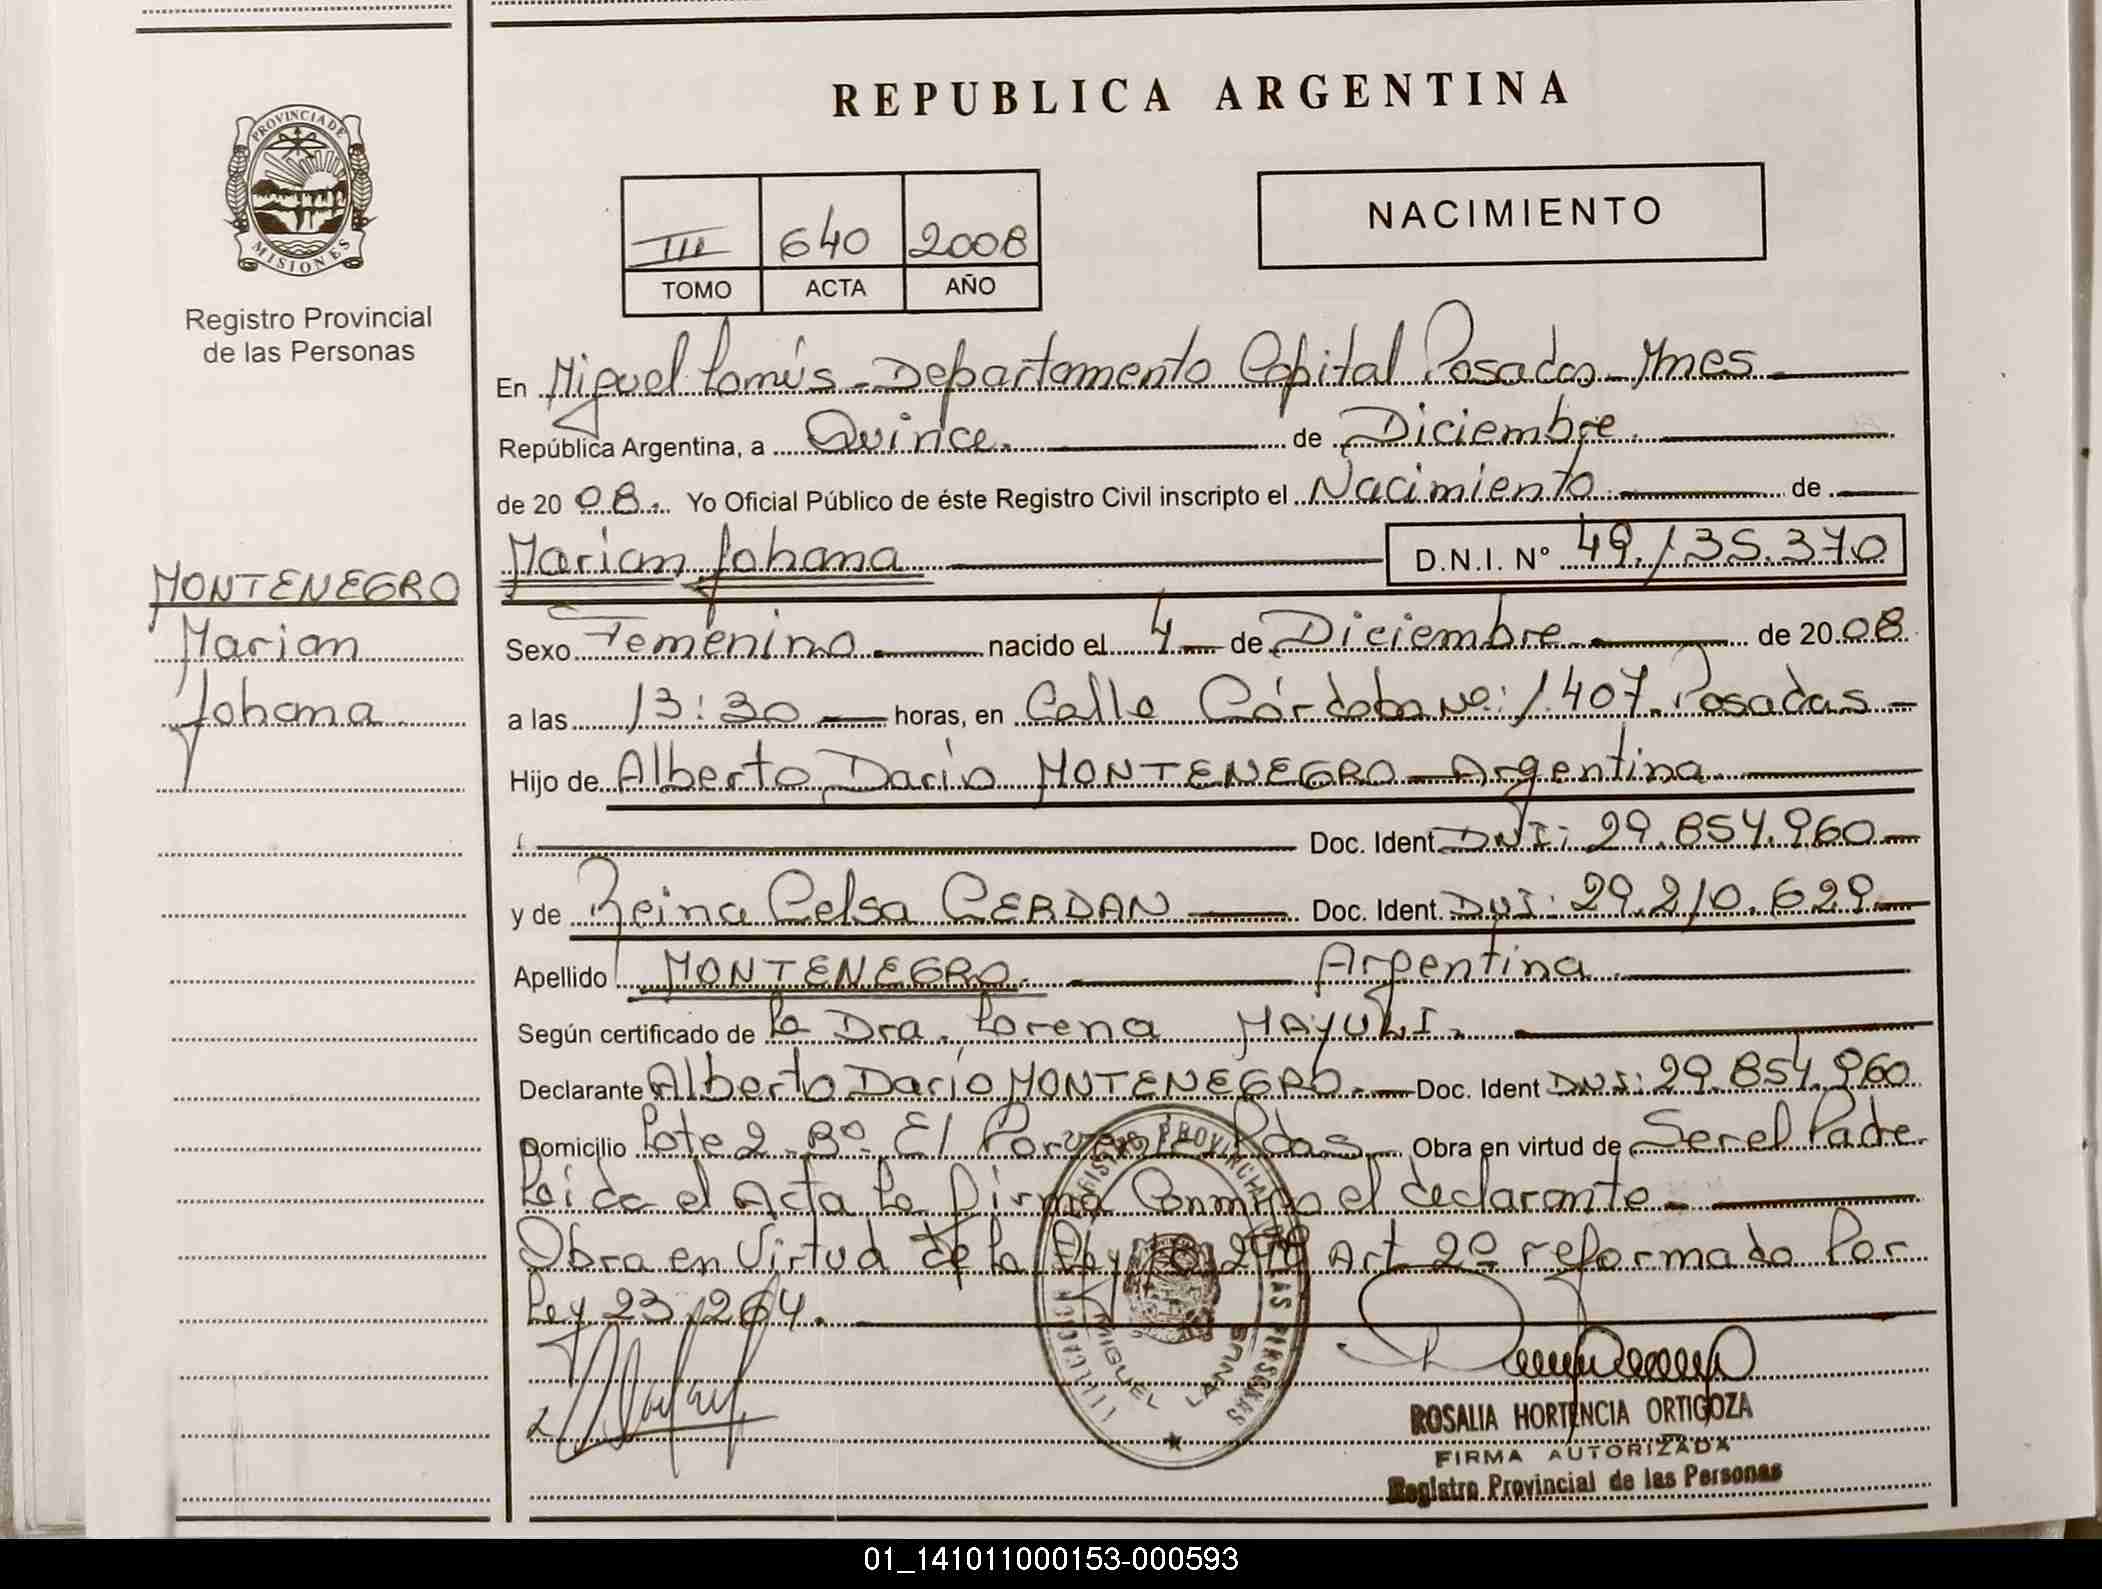 REPUBLICA ARGENTINA
PROVINCIA DE
MISIONES
Registro Provincial
de las Personas
III 640 2008
TOMO ACTA AÑO
NACIMIENTO
En Miguel Lanús - Departamento Capital Posadas - Mnes
República Argentina, a Quince. de Diciembre
de 20 08. Yo Oficial Público de éste Registro Civil inscripto el Nacimiento de
Marian Johana D.N.I. Nº 49.135.370
MONTENEGRO
Marian
Johana
Sexo Femenino nacido el 4 de Diciembre de 20 08
a las 13:30 horas, en Calle Córdoba Nº: 1.407. Posadas -
Hijo de Alberto Darío MONTENEGRO - Argentina
Doc. Ident. DNI: 29.854.960
y de Reina Celsa CERDAN Doc. Ident. DNI: 29.210.629
Apellido MONTENEGRO Argentina
Según certificado de la Dra. Lorena
Declarante Alberto Darío MONTENEGRO. Doc. Ident DNI: 29.854.960
Domicilio Lote 2 - Bº El Porvenir Pdas Obra en virtud de Ser el Padre
Leida el Acta la firma Conmigo el declarante
Obra en Virtud de la Ley 18.248 Art 2º reformado Por
Ley 23.264.
REGISTRO PROVINCIAL DE LAS PERSONAS
DELEGACION
MIGUEL LANUS
ROSALIA HORTENCIA ORTIGOZA
FIRMA AUTORIZADA
Registro Provincial de las Personas
01_141011000153-000593